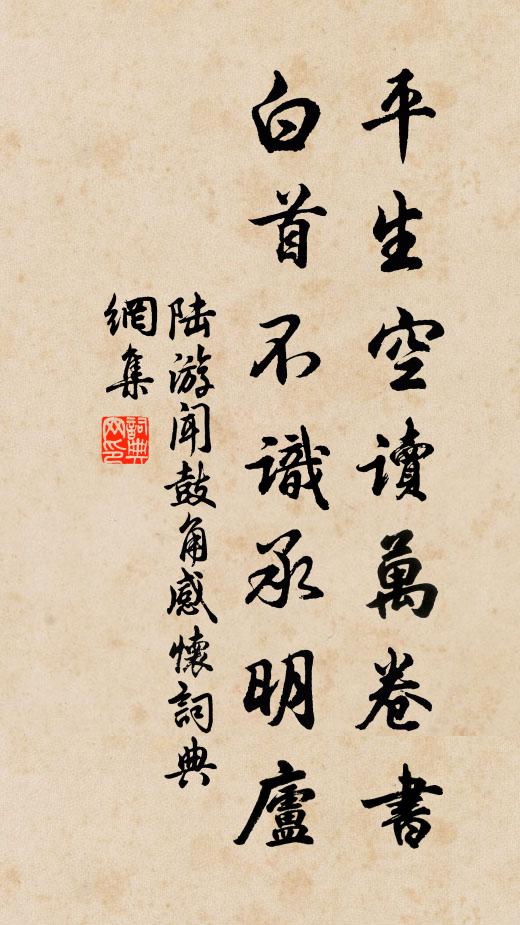 平生空讀萬卷書
白首不識承明廬
陆游闻鼓角感懷詞典
網集
詞典
网印